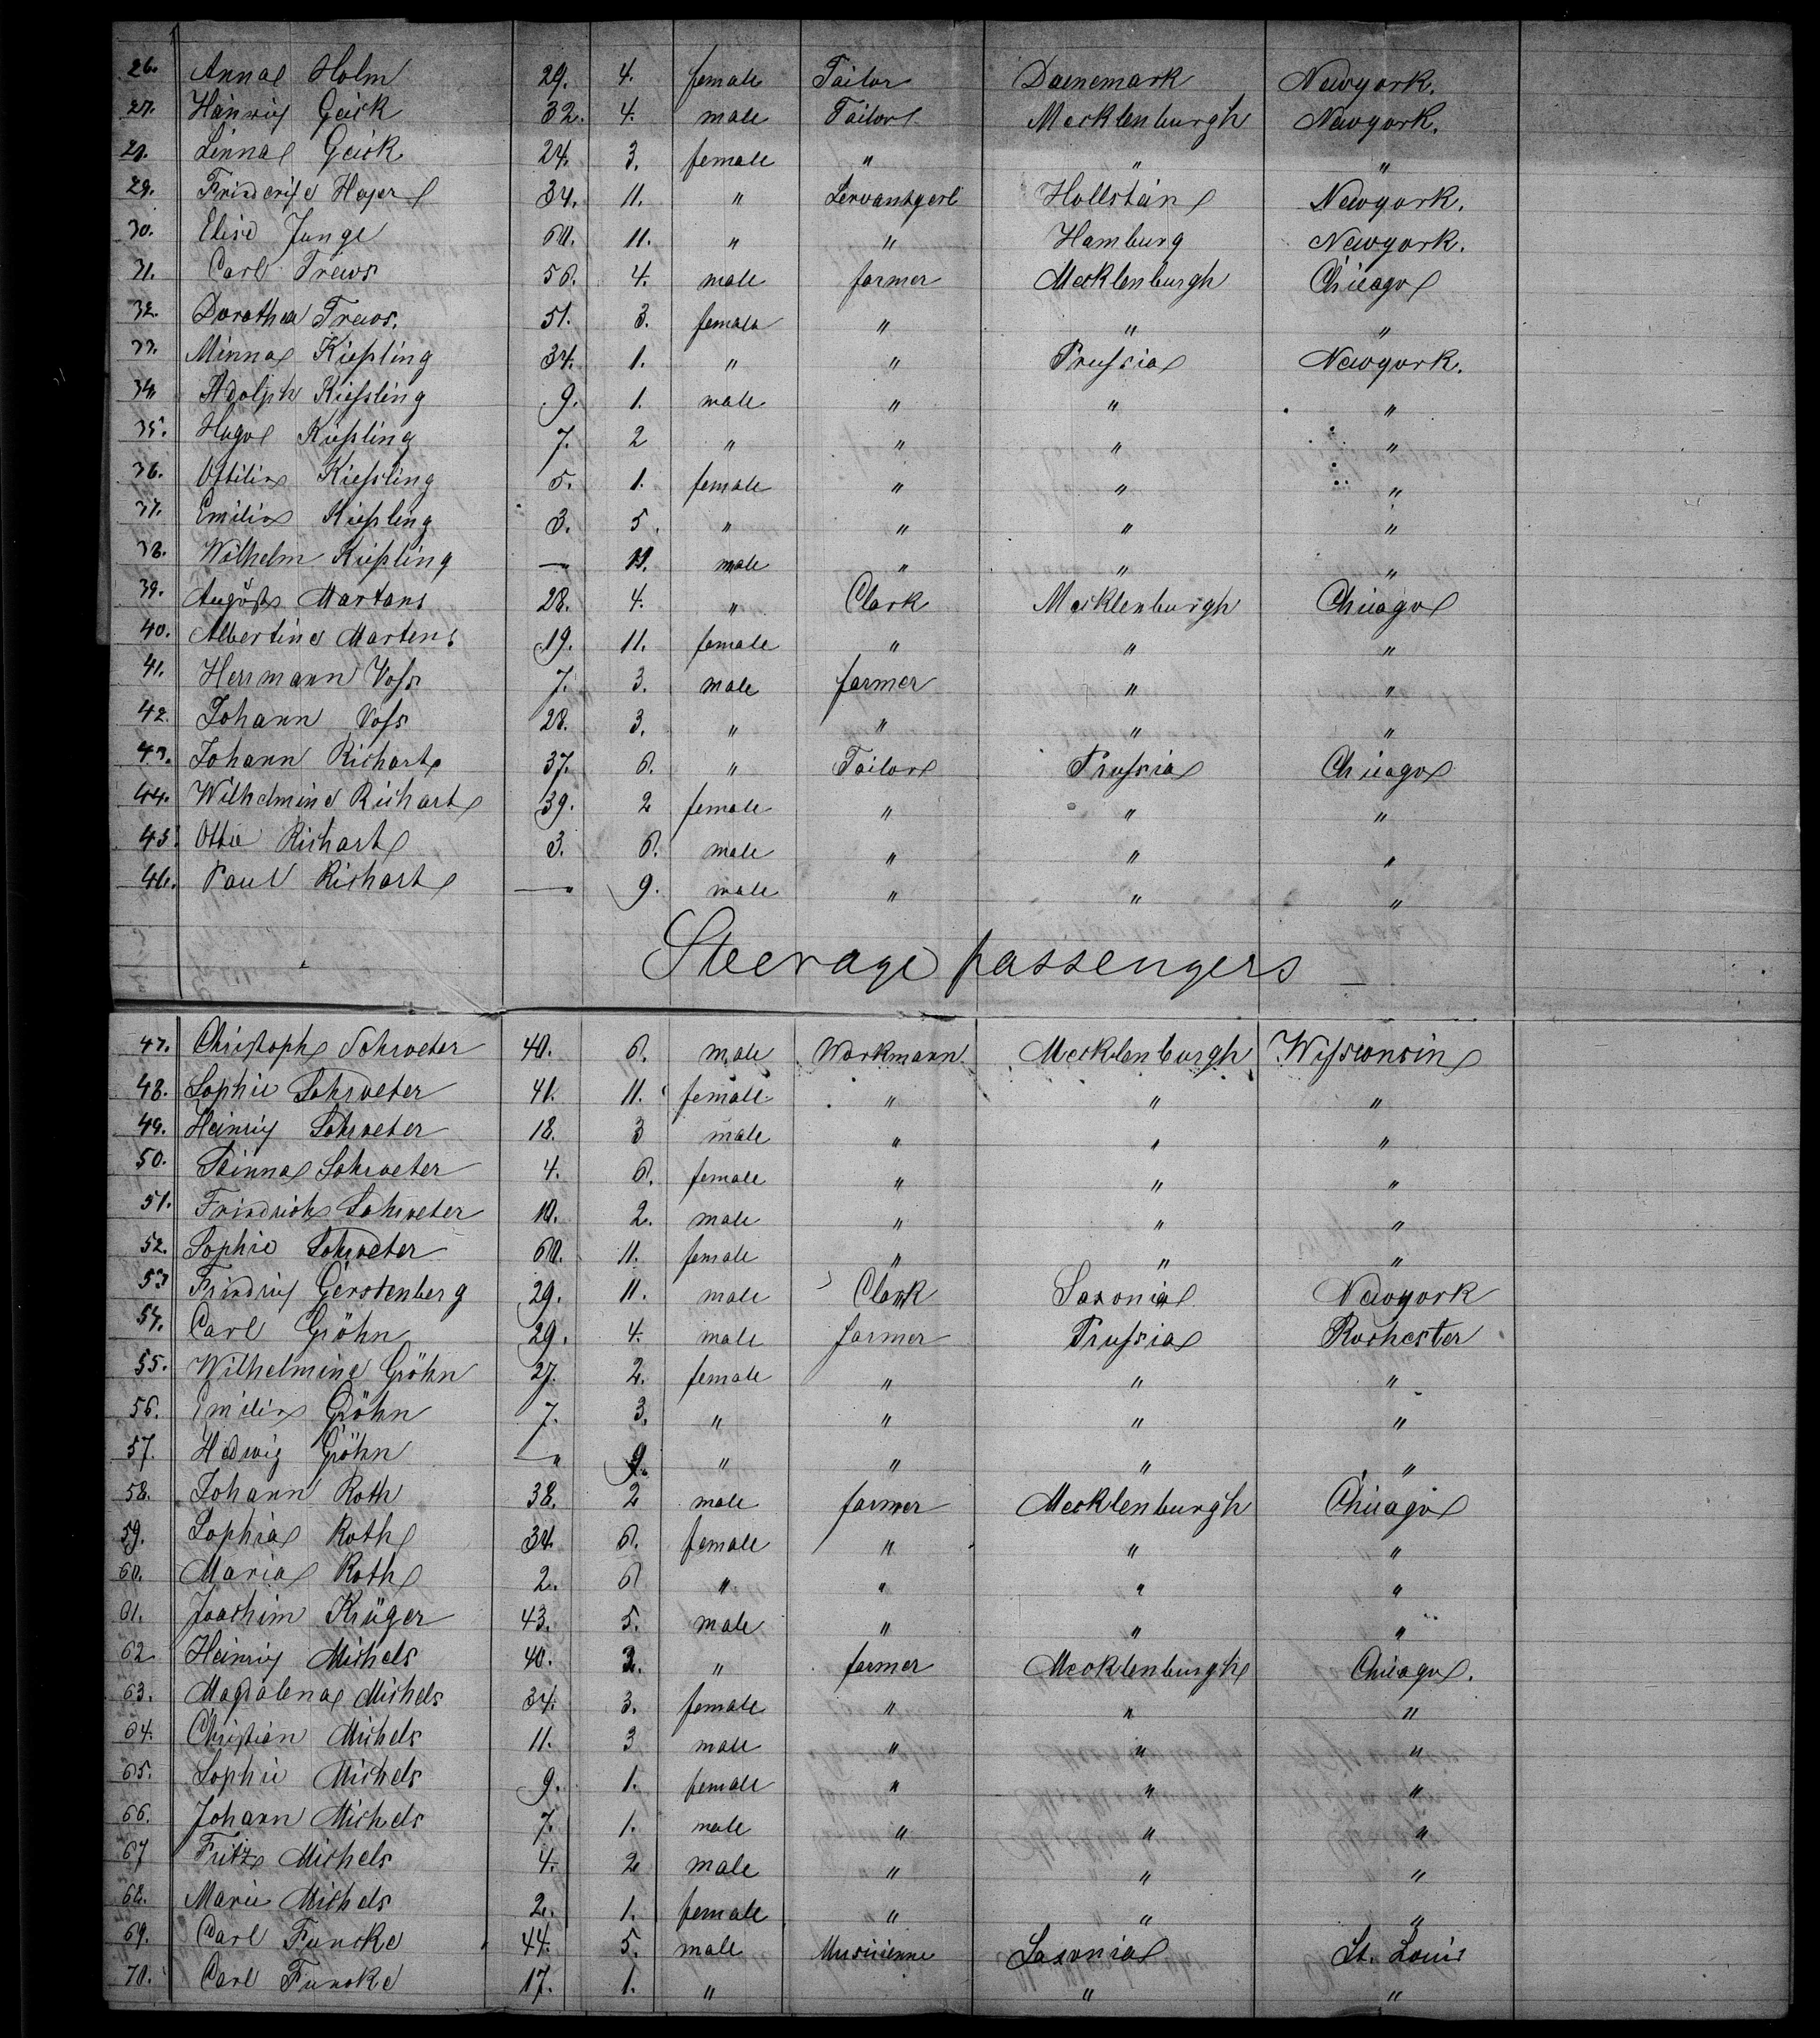 26. Anna Holm 29. 4. female Tailor Daenemark Newyork.
27. Heinrich Geick 32. 4. male Tailor Mecklenburgh Newyork.
28. Linna Geick 24. 3. female " " "
29. Friederike Hayer 34. 11. " Servantgerl Hollstein Newyork.
30. Elise Junge 60. 11. " " Hamburg Newyork.
31. Carl Trews 56. 4. male farmer Mecklenburgh Chicago
32. Dorothea Trews. 51. 3. female " " "
33. Minna Kiessling 34. 1. " " Prussia Newyork.
34. Adolph Kiessling 9. 1. male " " "
35. Hugo Kiessling 7. 2 " " " "
36. Ottilie Kiessling 5. 1. female " " "
37. Emilie Kiessling 3. 5. " " " "
38. Wilhelm Kiessling — 11. male " " "
39. August Martens 28. 4. " Clark Mecklenburgh Chicago
40. Albertine Martens 19. 11. female " " "
41. Herrmann Voss 7. 3. male farmer " "
42. Johann Voss 28. 3. " " " "
43. Johann Richart 37. 6. " Tailor Prussia Chicago
44. Wilhelmine Richart 39. 2 female " " "
45. Otto Richart 3. 6. male " " "
46. Paul Richart — 9. male " " "
Steerage passengers
47. Christoph Schroeter 40. 6. male Workmann Mecklenburgh Wisconsin
48. Sophie Schroeter 41. 11. female " " "
49. Heinrich Schroeter 18. 3 male " " "
50. Minna Schroeter 4. 6. female " " "
51. Friedrich Schroeter 10. 2. male " " "
52. Sophie Schroeter 60. 11. female " " "
53 Friedrich Gerstenberg 29. 11. male Clark Saxonia Newyork
54. Carl Gröhn 29. 4. male farmer Prussia Rochester
55. Wilhelmine Gröhn 27. 2. female " " "
56. Emilie Gröhn 7. 3. " " " "
57. Hedwig Gröhn — 9. " " " "
58. Johann Roth 38. 2 male farmer Mecklenburgh Chicago
59. Sophia Roth 34. 6. female " " "
60. Maria Roth 2. 6 " " " "
61. Joachim Krüger 43. 5. male " " "
62 Heinrich Michels 40. 2. " farmer Mecklenburgh Chicago.
63. Magdalena Michels 34. 3. female " " "
64. Christian Michels 11. 3 male " " "
65. Sophie Michels 9. 1. female " " "
66. Johann Michels 7. 1. male " " "
67 Fritz Michels 4. 2 male " " "
68. Marie Michels 2. 1. female " " "
69. Carl Funcke 44. 5. male Musicienne Saxonia St. Louis
70. Carl Funcke 17. 1. " " "